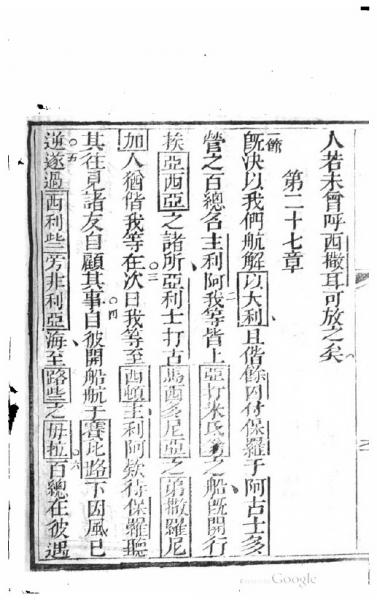 人若未曾呼西撒耳可放之矣
第二十七章
一節 既決以我們航解以大利且偕餘囚付保羅于阿古士多
營之百總名主利阿我等皆上亞打米氏翁之船既開行
挨亞西亞之諸所亞利士打古馬西多尼亞之弟撒羅尼
加人猶偕我等在次日我等至西頓主利阿欵待保羅聽
其往見諸友自顧其事自彼開船航于賽比路下因風已
逆遂過西利些旁非利亞海至路些之毋拉百總在彼遇
二
三
四
五
六
Google